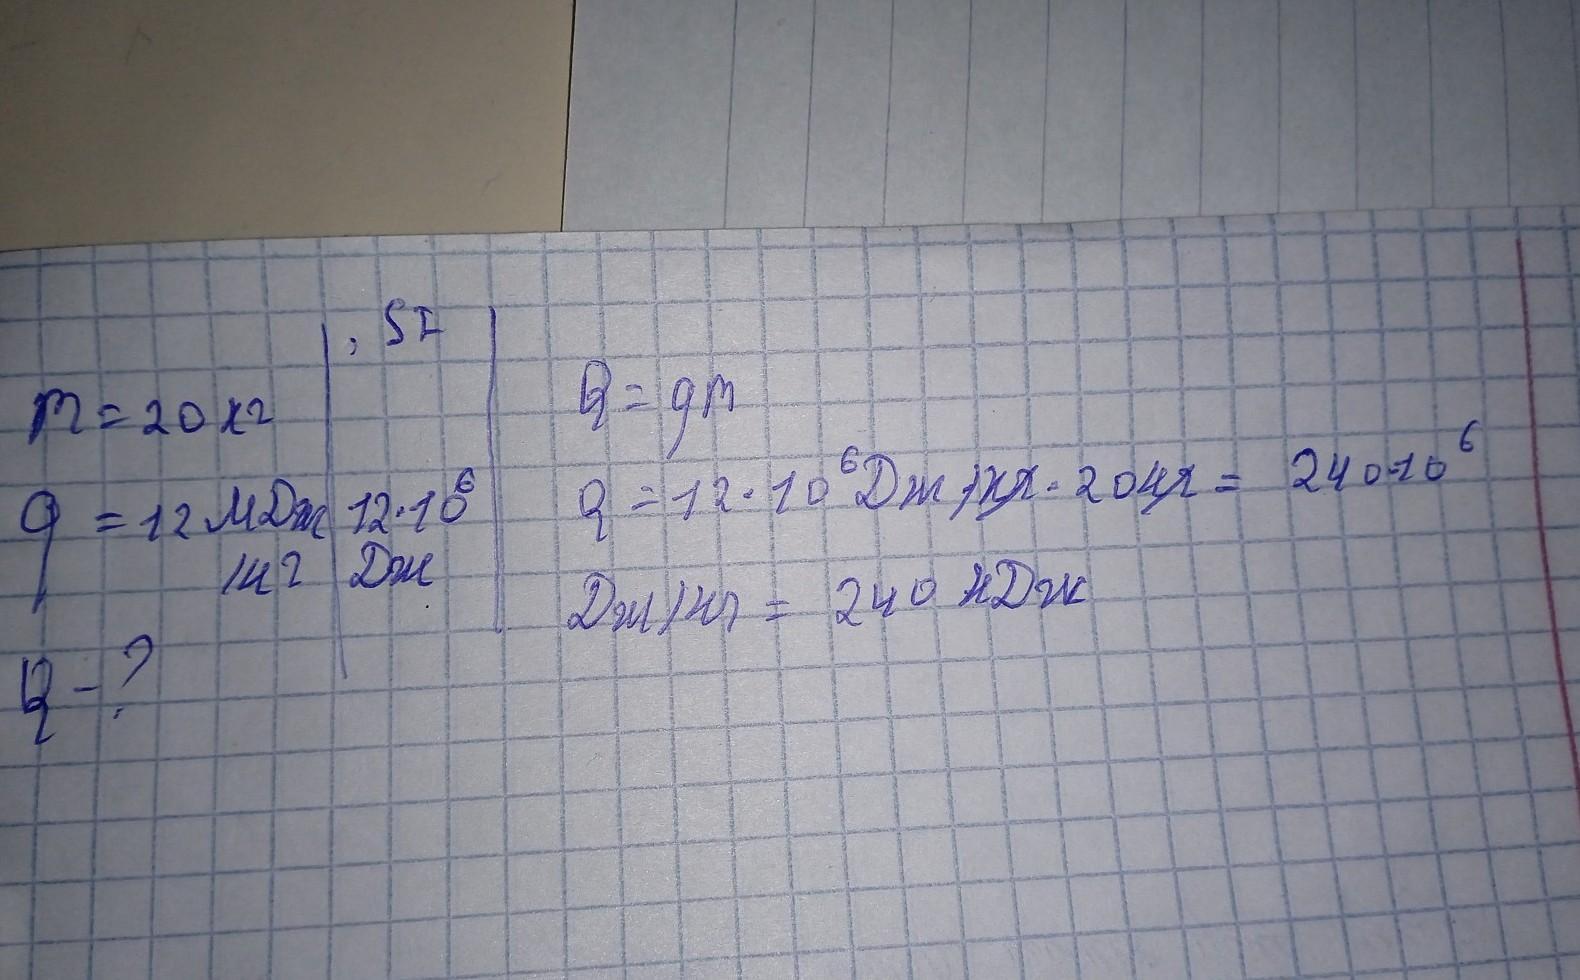 , SI
m = 20 кг
q = 12 МДж 12·10⁶
/кг Дж
Q - ?
Q = qm
Q = 12·10⁶Дж/кг·20кг = 240·10⁶
Дж/кг = 240 кДж